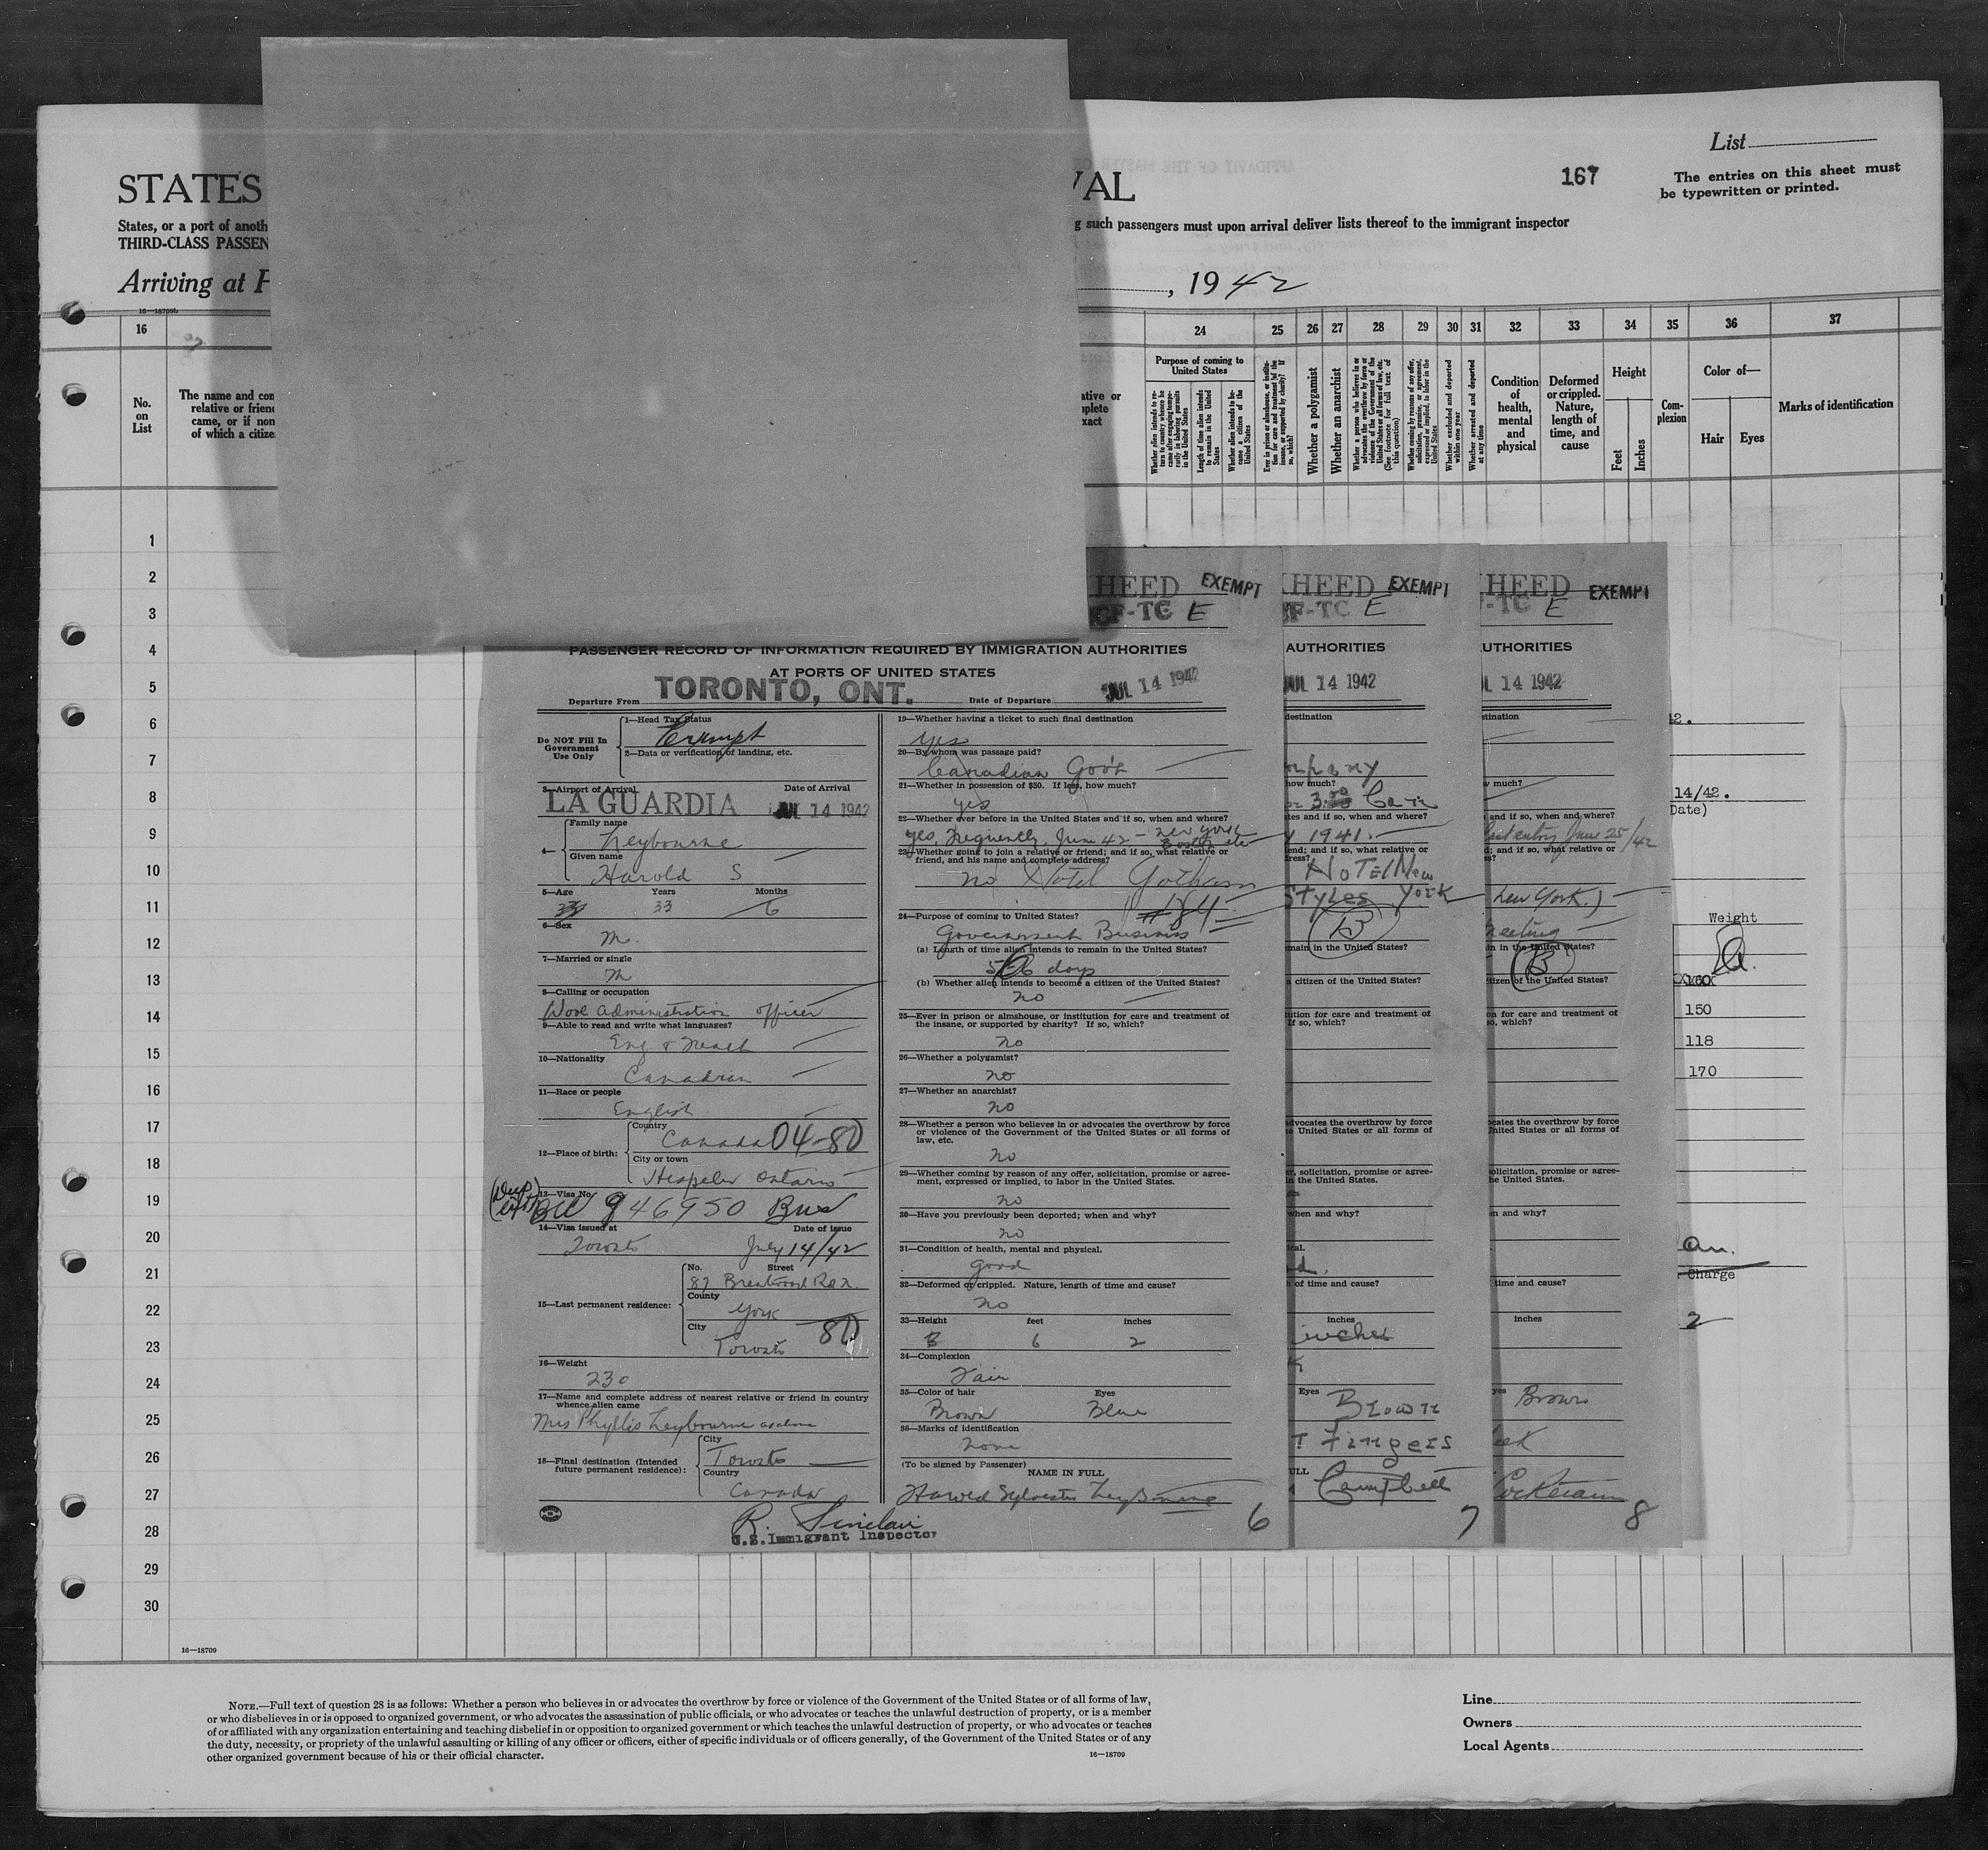 List
167
The entries on this sheet must
be typewritten or printed.
STATES
VAL
States, or a port of anoth
g such passengers must upon arrival deliver lists thereof to the immigrant inspector
THIRD-CLASS PASSEN
Arriving at P
, 1942
16—18709b
16
24
25
26
27
28
29
30
31
32
33
34
35
36
37
No.
on
List
The name and con
relative or friend
came, or if non
of which a citize
ative or
plete
xact
Purpose of coming to
United States
Whether a polygamist
Whether an anarchist
Condition
of
health,
mental
and
physical
Deformed
or crippled.
Nature,
length of
time, and
cause
Height
Feet
Inches
Com-
plexion
Color of—
Hair
Eyes
Marks of identification
1
2
3
4
5
6
7
8
9
10
11
12
13
14
15
16
17
18
19
20
21
22
23
24
25
26
27
28
29
30
16—18709
KHEED EXEMPT
CF-TC E
PASSENGER RECORD OF INFORMATION REQUIRED BY IMMIGRATION AUTHORITIES
AT PORTS OF UNITED STATES
Departure From TORONTO, ONT. Date of Departure JUL 14 1942
Do NOT Fill In
Government
Use Only
1—Head Tax Status
Exempt
2—Data or verification of landing, etc.
3—Airport of Arrival Date of Arrival
LA GUARDIA JUL 14 1942
4—
Family name
Leybourne
Given name
Harold S
5—Age Years Months
33 6
6—Sex
M.
7—Married or single
M
8—Calling or occupation
Wool Administration officer
9—Able to read and write what languages?
Eng. & French
10—Nationality
Canadian
11—Race or people
English
12—Place of birth:
Country
Canada 04-80
City or town
Hespeler Ontario
13—Visa No.
946950 Bus
14—Visa issued at Date of issue
Toronto July 14/42
15—Last permanent residence:
No. Street
87 Brentwood Rd N.
County
York
City
Toronto 80
16—Weight
230
17—Name and complete address of nearest relative or friend in country
whence alien came
Mrs Phyllis Leybourne as above
18—Final destination (Intended
future permanent residence):
City
Toronto
Country
Canada
R. Sinclair
U.S. Immigrant Inspector
19—Whether having a ticket to such final destination
yes
20—By whom was passage paid?
Canadian Gov't
21—Whether in possession of $50. If less, how much?
yes
22—Whether ever before in the United States and if so, when and where?
yes, Frequently, June 42 - New York
Boston etc
23—Whether going to join a relative or friend; and if so, what relative or
friend, and his name and complete address?
no Hotel Gotham
24—Purpose of coming to United States? #84
Government Business
(a) Length of time alien intends to remain in the United States?
5-6 days
(b) Whether alien intends to become a citizen of the United States?
no
25—Ever in prison or almshouse, or institution for care and treatment of
the insane, or supported by charity? If so, which?
no
26—Whether a polygamist?
no
27—Whether an anarchist?
no
28—Whether a person who believes in or advocates the overthrow by force
or violence of the Government of the United States or all forms of
law, etc.
no
29—Whether coming by reason of any offer, solicitation, promise or agree-
ment, expressed or implied, to labor in the United States.
no
30—Have you previously been deported; when and why?
no
31—Condition of health, mental and physical.
good
32—Deformed or crippled. Nature, length of time and cause?
no
33—Height feet inches
6 2
34—Complexion
Fair
35—Color of hair Eyes
Brown Blue
36—Marks of identification
none
(To be signed by Passenger)
NAME IN FULL
Harold Sylvester Leybourne
6
KHEED EXEMPT
CF-TC E
AUTHORITIES
JUL 14 1942
destination
mpany
how much?
tes and if so, when and where?
1941.
end; and if so, what relative or
ress?
HOTEL New
Styles York
B
main in the United States?
a citizen of the United States?
ution for care and treatment of
If so, which?
dvocates the overthrow by force
e United States or all forms of
r, solicitation, promise or agree-
n the United States.
when and why?
ical.
d.
h of time and cause?
inches
inches
Eyes Brown
T Fingers
ULL
Campbell
7
HEED EXEMPT
-TC E
UTHORITIES
L 14 1942
stination
w much?
and if so, when and where?
Last entry June 25/42
d; and if so, what relative or
s?
New York.)
Meeting
in in the United States?
B
itizen of the United States?
on for care and treatment of
so, which?
ocates the overthrow by force
United States or all forms of
olicitation, promise or agree-
he United States.
en and why?
time and cause?
inches
yes Brown
eek
8
42.
14/42.
Date)
Weight
160
150
118
170
an.
Charge
2
NOTE.—Full text of question 28 is as follows: Whether a person who believes in or advocates the overthrow by force or violence of the Government of the United States or of all forms of law,
or who disbelieves in or is opposed to organized government, or who advocates the assassination of public officials, or who advocates or teaches the unlawful destruction of property, or is a member
of or affiliated with any organization entertaining and teaching disbelief in or opposition to organized government or which teaches the unlawful destruction of property, or who advocates or teaches
the duty, necessity, or propriety of the unlawful assaulting or killing of any officer or officers, either of specific individuals or of officers generally, of the Government of the United States or of any
other organized government because of his or their official character.
16—18709
Line
Owners
Local Agents